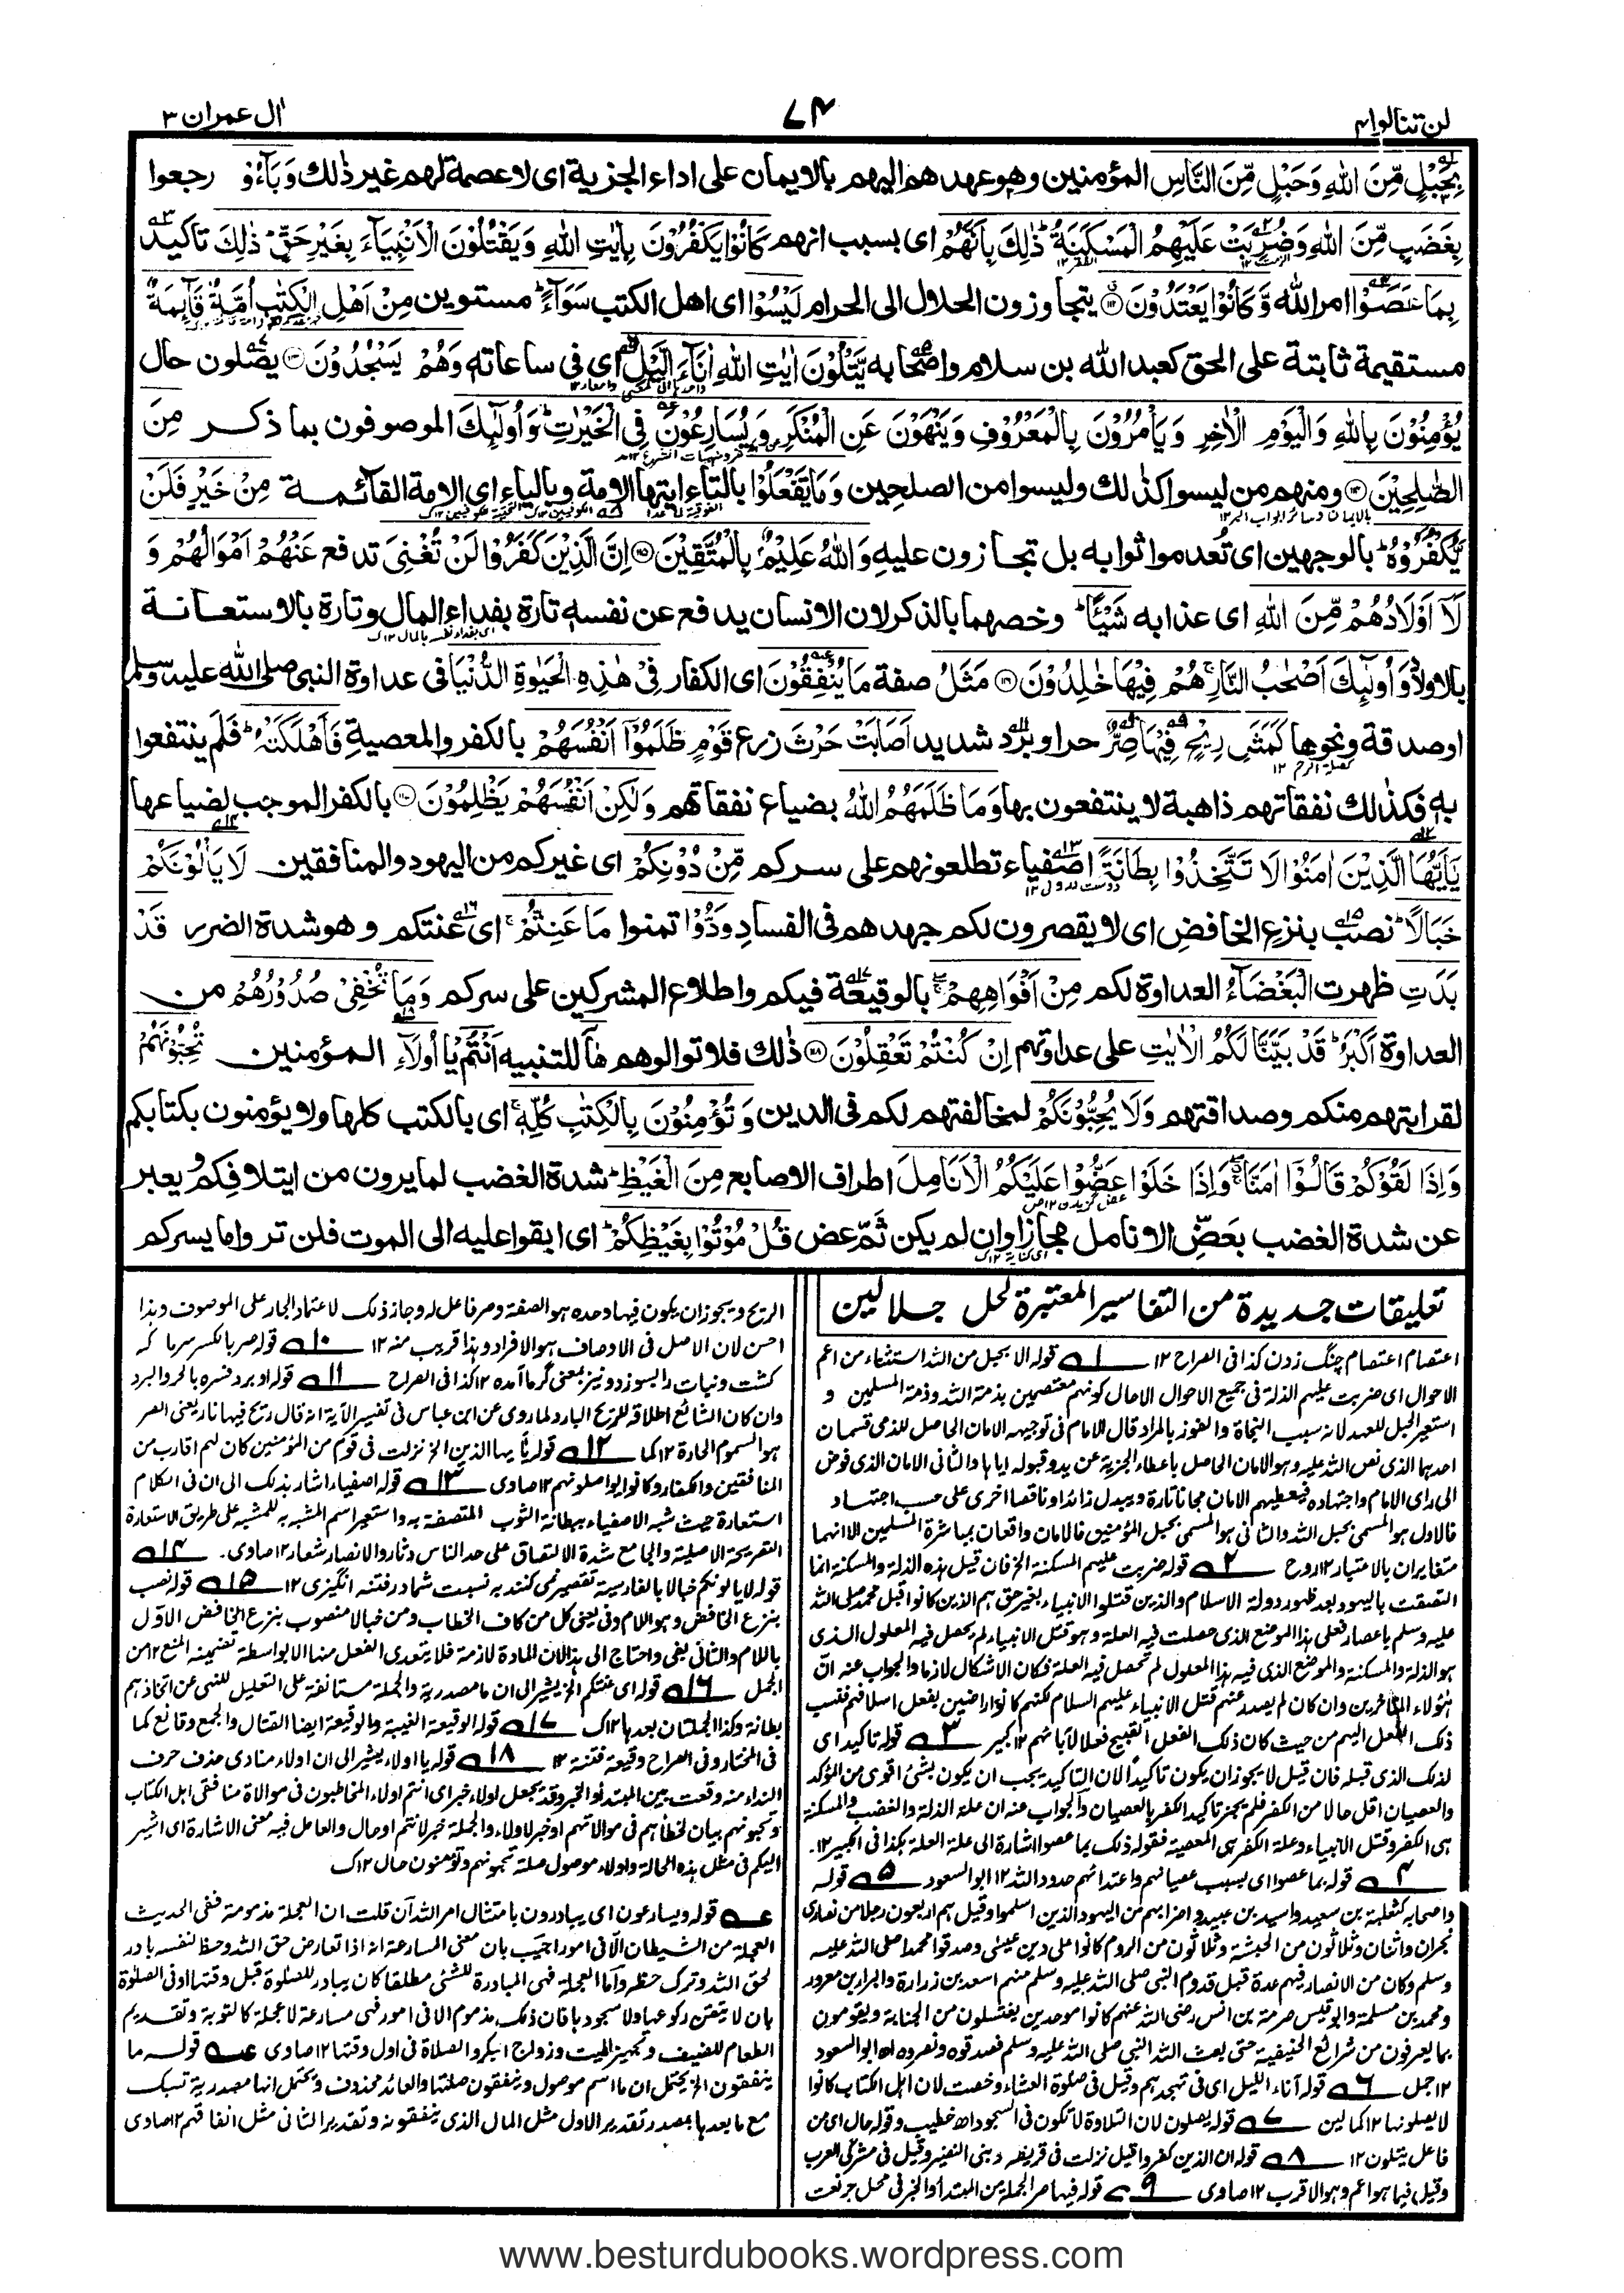 لن تنالوا۴
۷۴
اٰل عمران ۳
بِحَبْلٍ مِّنَ اللهِ وَحَبْلٍ مِّنَ النَّاسِ المؤمنين وهو عهدهم اليهم بالايمان على اداء الجزية اى لا عصمة لهم غير ذٰلك وَبَآءُوْ رجعوا
بِغَضَبٍ مِّنَ اللهِ وَضُرِبَتْ عَلَيْهِمُ الْمَسْكَنَةُ ؕ ذٰلِكَ بِاَنَّهُمْ اى بسبب انهم كَانُوْا يَكْفُرُوْنَ بِاٰيٰتِ اللهِ وَيَقْتُلُوْنَ الْاَنْۢبِيَآءَ بِغَيْرِ حَقٍّ ؕ ذٰلِكَ تاكيد
بِمَا عَصَوْا امر الله وَّكَانُوْا يَعْتَدُوْنَ ۝ يتجاوزون الحلال الى الحرام لَيْسُوْا اى اهل الكتب سَوَآءً ؕ مستوين مِنْ اَهْلِ الْكِتٰبِ اُمَّةٌ قَآئِمَةٌ
مستقيمة ثابتة على الحق كعبد الله بن سلام واصحابه يَّتْلُوْنَ اٰيٰتِ اللهِ اٰنَآءَ الَّيْلِ اى فى ساعاته وَهُمْ يَسْجُدُوْنَ ۝ يصلون حال
يُؤْمِنُوْنَ بِاللهِ وَالْيَوْمِ الْاٰخِرِ وَيَأْمُرُوْنَ بِالْمَعْرُوْفِ وَيَنْهَوْنَ عَنِ الْمُنْكَرِ وَيُسَارِعُوْنَ فِى الْخَيْرٰتِ ؕ وَاُولٰٓئِكَ الموصوفون بما ذكر مِنَ
الصّٰلِحِيْنَ ۝ ومنهم من ليسوا كذلك وليسوا من الصلحين وَمَا تَفْعَلُوْا بالتاء ايتها الامة وبالياء اى الامة القآئمة مِنْ خَيْرٍ فَلَنْ
يُّكْفَرُوْهُ ؕ بالوجهين اى تُعدموا ثوابه بل تجازون عليه وَاللهُ عَلِيْمٌۢ بِالْمُتَّقِيْنَ ۝ اِنَّ الَّذِيْنَ كَفَرُوْا لَنْ تُغْنِىَ تدفع عَنْهُمْ اَمْوَالُهُمْ وَ
لَآ اَوْلَادُهُمْ مِّنَ اللهِ اى عذابه شَيْـًٔا ؕ وخصهما بالذكر لان الانسان يدفع عن نفسه تارة بفداء المال وتارة بالاستعانة
بالاولاد وَاُولٰٓئِكَ اَصْحٰبُ النَّارِ ۚ هُمْ فِيْهَا خٰلِدُوْنَ ۝ مَثَلُ صفة مَا يُنْفِقُوْنَ اى الكفار فِىْ هٰذِهِ الْحَيٰوةِ الدُّنْيَا فى عداوة النبى صلى الله عليه وسلم
او صدقة ونحوها كَمَثَلِ رِيْحٍ فِيْهَا صِرٌّ حر او برد شديد اَصَابَتْ حَرْثَ زرع قَوْمٍ ظَلَمُوْٓا اَنْفُسَهُمْ بالكفر والمعصية فَاَهْلَكَتْهُ ؕ فلم ينتفعوا
به فكذلك نفقاتهم ذاهبة لا ينتفعون بها وَمَا ظَلَمَهُمُ اللهُ بضياع نفقاتهم وَلٰكِنْ اَنْفُسَهُمْ يَظْلِمُوْنَ ۝ بالكفر الموجب لضياعها
يٰٓاَيُّهَا الَّذِيْنَ اٰمَنُوْا لَا تَتَّخِذُوْا بِطَانَةً اصفياء تطلعونهم على سركم مِّنْ دُوْنِكُمْ اى غيركم من اليهود والمنافقين لَا يَأْلُوْنَكُمْ
خَبَالًا ؕ نصب بنزع الخافض اى لا يقصرون لكم جهدهم فى الفساد وَدُّوْا تمنوا مَا عَنِتُّمْ ۚ اى عنتكم وهو شدة الضرر قَدْ
بَدَتِ ظهرت الْبَغْضَآءُ العداوة لكم مِنْ اَفْوَاهِهِمْ ۖ بالوقيعة فيكم واطلاع المشركين على سركم وَمَا تُخْفِىْ صُدُوْرُهُمْ من
العداوة اَكْبَرُ ؕ قَدْ بَيَّنَّا لَكُمُ الْاٰيٰتِ على عداوتهم اِنْ كُنْتُمْ تَعْقِلُوْنَ ۝ ذٰلك فلا توالوهم هٰٓا للتنبيه اَنْتُمْ يا اُولَآءِ المؤمنين تُحِبُّوْنَهُمْ
لقرابتهم منكم وصداقتهم وَلَا يُحِبُّوْنَكُمْ لمخالفتهم لكم فى الدين وَتُؤْمِنُوْنَ بِالْكِتٰبِ كُلِّهٖ ۚ اى بالكتب كلها ولا يؤمنون بكتابكم
وَاِذَا لَقُوْكُمْ قَالُوْٓا اٰمَنَّا ۖ وَاِذَا خَلَوْا عَضُّوْا عَلَيْكُمُ الْاَنَامِلَ اطراف الاصابع مِنَ الْغَيْظِ ؕ شدة الغضب لما يرون من ايتلافكم ويعبر
عن شدة الغضب بعَضِّ الانامل مجازا وان لم يكن ثَمَّ عض قُلْ مُوْتُوْا بِغَيْظِكُمْ ؕ اى ابقوا عليه الى الموت فلن تروا ما يسركم
تعليقات جديدة من التفاسير المعتبرة لحل جلالين
اعتصام اعتصام چنگ زدن كذا فى الصراح ۱۲ ۱ قوله الا بحبل من الله استثناء من اعم
الاحوال اى ضربت عليهم الذلة فى جميع الاحوال الا حال كونهم معتصمين بذمة الله وذمة المسلمين و
استعير الحبل للعهد لانه سبب النجاة والفوز بالمراد قال الامام فى توجيهه الامان الحاصل للذمى قسمان
احدهما الذى نص الله عليه وهو الامان الحاصل باعطاء الجزية عن يد وقبوله اياها والثانى الامان الذى فوض
الى راى الامام واجتهاده فيعطيهم الامان مجانا تارة وببدل زائد او ناقص اخرى على حسب اجتهاد
فالاول هو المسمى بحبل الله والثانى هو المسمى بحبل المؤمنين فالامان واقعان بمباشرة المسلمين الا انهما
متغايران بالاعتبار ۱۲ روح ۲ قوله ضربت عليهم المسكنة الخ فان قيل هذه الذلة والمسكنة انما
التصقت باليهود بعد ظهور دولة الاسلام والذين قتلوا الانبياء بغير حق هم الذين كانوا قبل محمد صلى الله
عليه وسلم باعصار فعلى هذا الموضع الذى حصلت فيه العلة وهو قتل الانبياء لم يحصل فيه المعلول الذى
هو الذلة والمسكنة والموضع الذى فيه هذا المعلول لم تحصل فيه العلة فكان الاشكال لازما والجواب عنه انّ
هؤلاء المتاخرين وان كان لم يصدر عنهم قتل الانبياء عليهم السلام لكنهم كانوا راضين بفعل اسلافهم فنسب
ذلك الفعل اليهم من حيث كان ذلك الفعل القبيح فعلا لآبائهم ۱۲ كبير ۳ قوله تاكيد اى
لذلك الذى قبله فان قيل لا يجوز ان يكون تاكيدا لان التاكيد يجب ان يكون بشئ اقوى من المؤكد
والعصيان اقل حالا من الكفر فلم يجز تاكيد الكفر بالعصيان والجواب عنه ان علة الذلة والغضب والمسكنة
هى الكفر وقتل الانبياء وعلة الكفر هى المعصية فقوله ذلك بما عصوا اشارة الى علة العلة هكذا فى الكبير ۱۲.
۴ قوله بما عصوا اى بسبب عصيانهم واعتدائهم حدود الله ۱۲ ابو السعود ۵ قوله
واصحابه كثعلبة بن سعيد واسيد بن عبيد واضرابهم من اليهود الذين اسلموا وقيل هم اربعون رجلا من نصارى
نجران واثنان وثلاثون من الحبشة وثلاثون من الروم كانوا على دين عيسى وصدقوا محمدا صلى الله عليه
وسلم وكان من الانصار فيهم عدة قبل قدوم النبى صلى الله عليه وسلم منهم اسعد بن زرارة والبراء بن معرور
ومحمد بن مسلمة وابو قيس صرمة بن انس رضى الله عنهم كانوا موحدين يغتسلون من الجنابة ويقومون
بما يعرفون من شرائع الحنيفية حتى بعث الله النبى صلى الله عليه وسلم فصدقوه ونصروه اھ ابو السعود
۱۲ جمل ۶ قوله آناء الليل اى فى تهجدهم وقيل فى صلوة العشاء وخصت لان اهل الكتاب كانوا
لا يصلونها ۱۲ كمالين ۷ قوله يصلون لان التلاوة لا تكون فى السجود اھ خطيب وقوله حال اى من
فاعل يتلون ۱۲ ۸ قوله ان الذين كفروا قيل نزلت فى قريظه وبنى النضير وقيل فى مشركى العرب
وقيل فيما هو اعم وهو الاقرب ۱۲ صاوى ۹ قوله فيها صر الجملة من المبتدأ والخبر فى محل جر نعت
الريح ويجوز ان يكون فيها وحده هو الصفة وصر فاعل له وجاز ذلك لاعتماد الجار على الموصوف وهذا
احسن لان الاصل فى الاوصاف هو الافراد وهذا قريب منه ۱۲ ۱۰ قوله صر بالكسر سرما كه
كشت ونبات را بسوزد ونيز بمعنى گرما آمده ۱۲ كذا فى الصراح ۱۱ قوله او برد فسره بالحر والبرد
وان كان الشائع اطلاقه للريح البارد لما روى عن ابن عباس فى تفسير الآية انه قال ريح فيها نار يعنى الصر
هو السموم الحارة ۱۲ كما ۱۲ قوله يا ايها الذين الخ نزلت فى قوم من المؤمنين كان لهم اقارب من
المنافقين والكفار وكانوا يواصلونهم ۱۲ صاوى ۱۳ قوله اصفياء اشار بذلك الى ان فى الكلام
استعارة حيث شبه الاصفياء ببطانة الثوب الملتصقة به واستعير اسم المشبه به للمشبه على طريق الاستعارة
التصريحية الاصلية والجامع شدة الالتصاق على حد الناس دثار والانصار شعار ۱۲ صاوى. ۱۴
قوله لا يالونكم خبالا بالفارسية تقصير نمى كنند به نسبت شما در فتنه انگيزى ۱۲ ۱۵ قوله نصب
بنزع الخافض وهو اللام وفى يعنى كل من كاف الخطاب ومن خبالا منصوب بنزع الخافض الاول
باللام والثانى بفى واحتاج الى هذا لان المادة لازمة فلا يتعدى الفعل منها الا بواسطة تضمينه المنع ۱۲ من
الجمل ۱۶ قوله اى عنتكم الخ يشير الى ان ما مصدرية والجملة مستانفة على التعليل للنهى عن اتخاذهم
بطانة وكذا الجملتان بعدها ۱۲ ك ۱۷ قوله الوقيعة الغيبة والوقيعة ايضا القتال والجمع وقائع كما
فى المختار وفى الصراح وقيعة فتنة ۱۲ ۱۸ قوله يا اولاء يشير الى ان اولاء منادى حذف حرف
النداء منه وقعت بين المبتدأ والخبر وقد يجعل اولاء خبر اى انتم اولاء المخاطبون فى موالاة منافقى اهل الكتاب
وتحبونهم بيان لخطأهم فى موالاتهم او خبر لاولاء والجملة خبر لانتم او حال والعامل فيه معنى الاشارة اى اشير
اليكم فى مثل هذه الحالة واولاء موصول صلته تحبونهم وتؤمنون حال ۱۲ ك
عه قوله ويسارعون اى يبادرون بامتثال امر الله آن قلت ان العجلة مذمومة ففى الحديث
العجلة من الشيطان الا فى امور اجيب بان معنى المسارعة انه اذا تعارض حق الله وحظ لنفسه بادر
لحق الله وترك حظه واما العجلة فهى المبادرة للشئ مطلقا كان يبادر للصلوة قبل وقتها او فى الصلوة
بان لا يتقن ركوعها ولا سجودها فان ذلك مذموم الا فى امور فهى مسارعة لا عجلة كالتوبة وتقديم
الطعام للضيف وتجهيز الميت وزواج البكر والصلاة فى اول وقتها ۱۲ صاوى عه قوله ما
ينفقون الخ يحتمل ان ما اسم موصول وينفقون صلتها والعائد محذوف ويحتمل انها مصدرية تسبك
مع ما بعدها بمصدر تقدير الاول مثل المال الذى ينفقونه وتقدير الثانى مثل انفاقهم ۱۲ صاوى
www.besturdubooks.wordpress.com